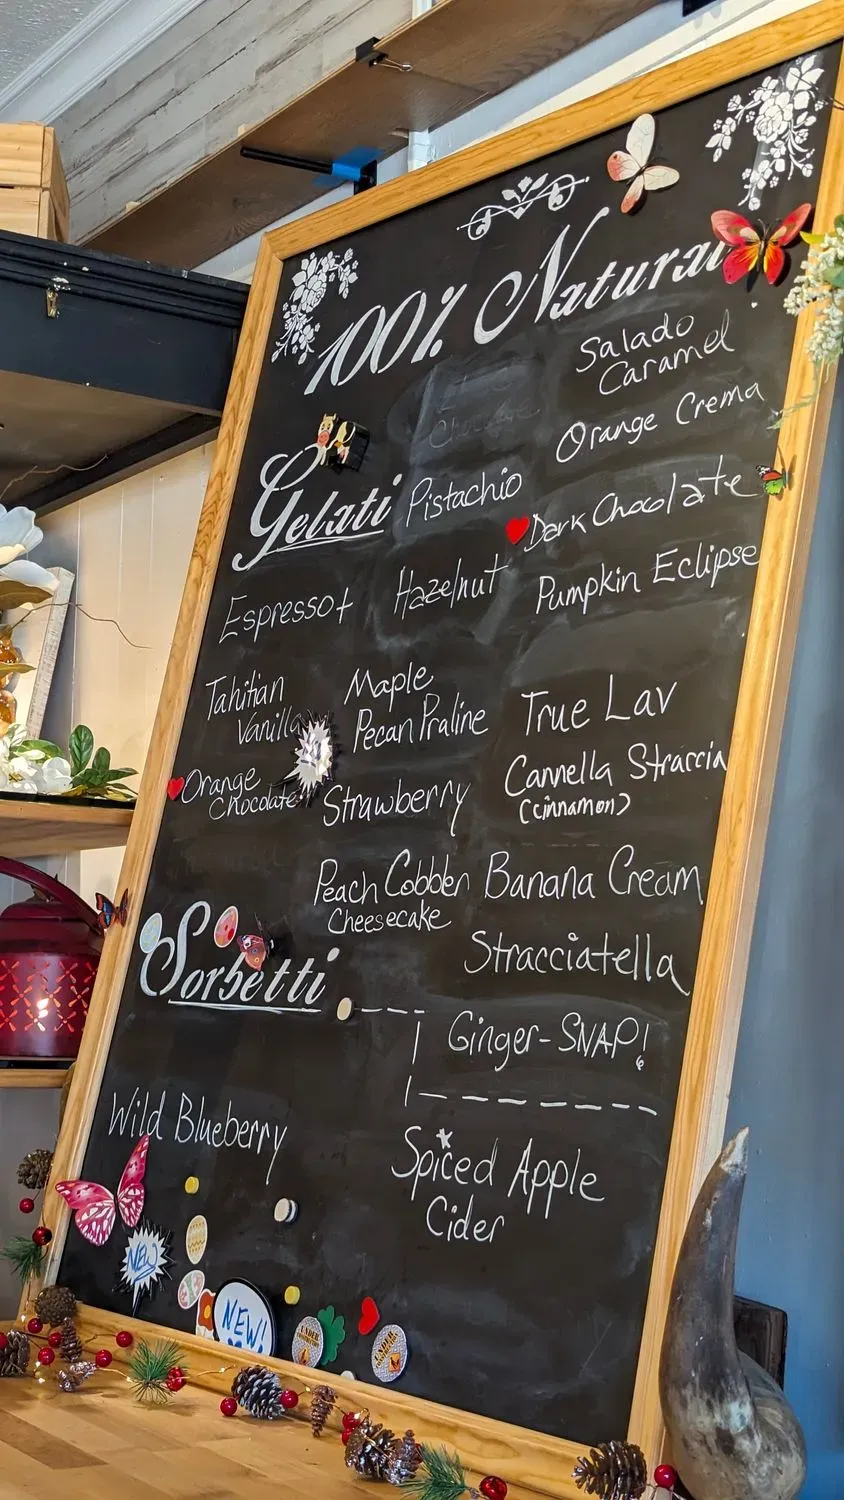 100% Natural
Gelati
Espresso
Tahitian
Vanilla
Orange
Chocolate
Chocolate
Pistachio
Hazelnut
Maple
Pecan Praline
Strawberry
Peach Cobbler
Cheesecake
Salado
Caramel
Orange Crema
Dark Chocolate
Pumpkin Eclipse
True Lav
Cannella Straccia
(cinnamon)
Banana Cream
Stracciatella
Ginger-SNAP!
Sorbetti
Wild Blueberry
Spiced Apple
Cider
NEW
NEW!